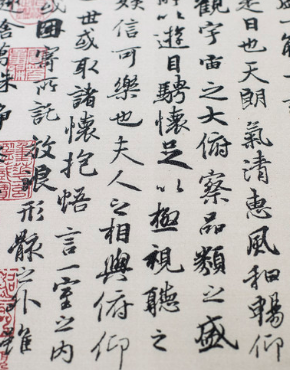 是日也天朗氣清惠風和暢仰
觀宇宙之大俯察品類之盛
所以遊目騁懷足以極視聽之
娛信可樂也夫人之相與俯仰
世或取諸懷抱悟言一室之内
或因寄所託放浪形骸之外雖
舍萬殊靜